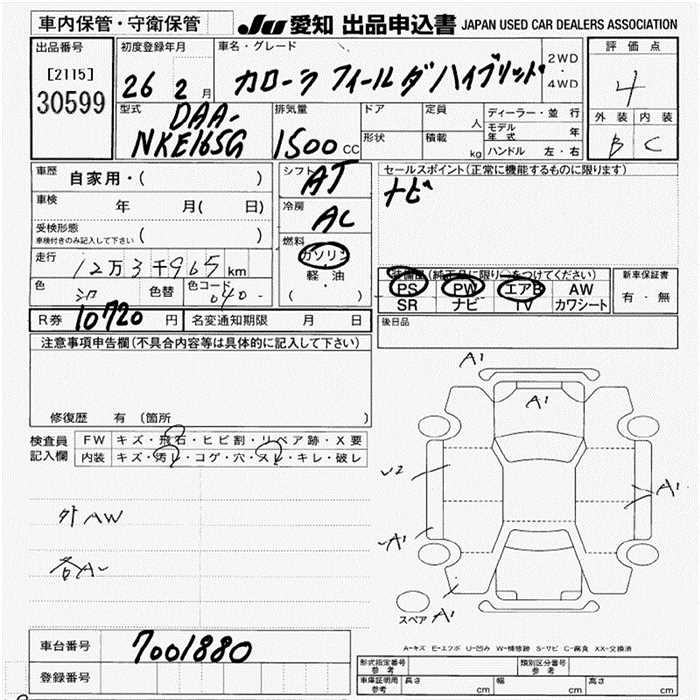 車内保管・守衛保管
JU 愛知 出品申込書 JAPAN USED CAR DEALERS ASSOCIATION
出品番号
[2115]
30599
初度登録年月
26 2 月
車名・グレード
カローラ フィールダ ハイブリッド
2WD
・
4WD
評価点
4
外装 内装
B C
型式
DAA-
NKE165G
排気量
1500 CC
ドア
形状
定員 人
積載 kg
ディーラー・並行
モデル年式 年
ハンドル 左・右
車歴
自家用・( )
車検 年 月( 日)
受検形態
車検付きのみ記入して下さい ( )
走行
12万3千965 km
色
色替
色コード
040
シフト
AT
冷房
AC
燃料
ガソリン
軽・油
( ・ )
セールスポイント(正常に機能するものに限ります)
ナビ
装備品(純正品に限り○をつけてください)
PS PW エアB AW
SR ナビ TV カワシート
新車保証書
有・無
R券 10720 円
名変通知期限 月 日
後日品
注意事項申告欄(不具合内容等は具体的に記入して下さい)
修復歴 有(箇所 )
検査員
記入欄
FW キズ・飛石・ヒビ割・リペア跡・X要
内装 キズ・汚レ・コゲ・穴・スレ・キレ・破レ
外AW
各A
A1
A1
A1
A1
A1
スペア
A-キズ E-エクボ U-凹み W-補修跡 S-サビ C-腐食 XX-交換済
車台番号 7001880
登録番号
型式指定番号
参考
類別区分番号
参考
車庫証明用
参考
長さ cm 幅 cm 高さ cm